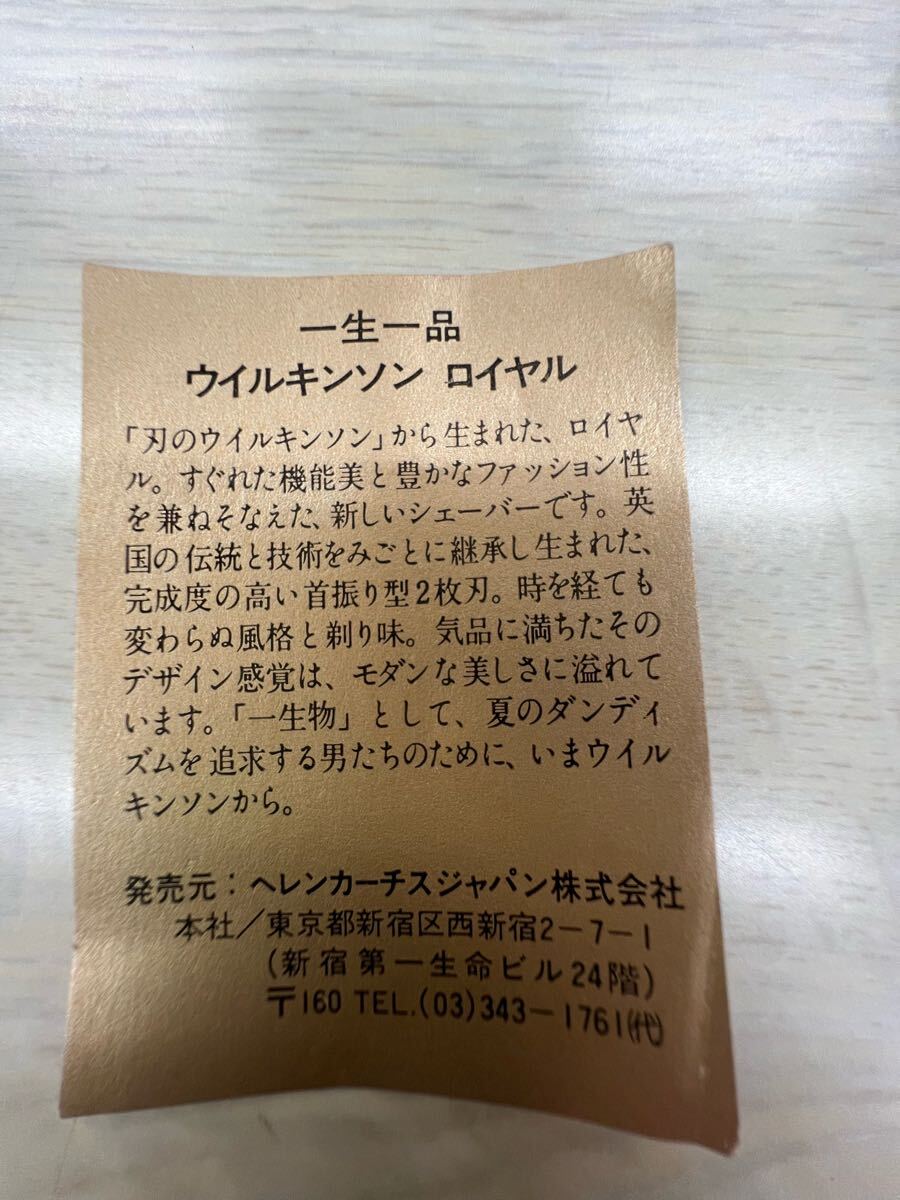 一生一品
ウイルキンソン ロイヤル
「刃のウイルキンソン」から生まれた、ロイヤ
ル。すぐれた機能美と豊かなファッション性
を兼ねそなえた、新しいシェーバーです。英
国の伝統と技術をみごとに継承し生まれた、
完成度の高い首振り型2枚刃。時を経ても
変わらぬ風格と剃り味。気品に満ちたその
デザイン感覚は、モダンな美しさに溢れて
います。「一生物」として、夏のダンディ
ズムを追求する男たちのために、いまウイル
キンソンから。
発売元：ヘレンカーチスジャパン株式会社
本社／東京都新宿区西新宿2-7-1
(新宿第一生命ビル24階)
〒160 TEL.(03)343-1761㈹